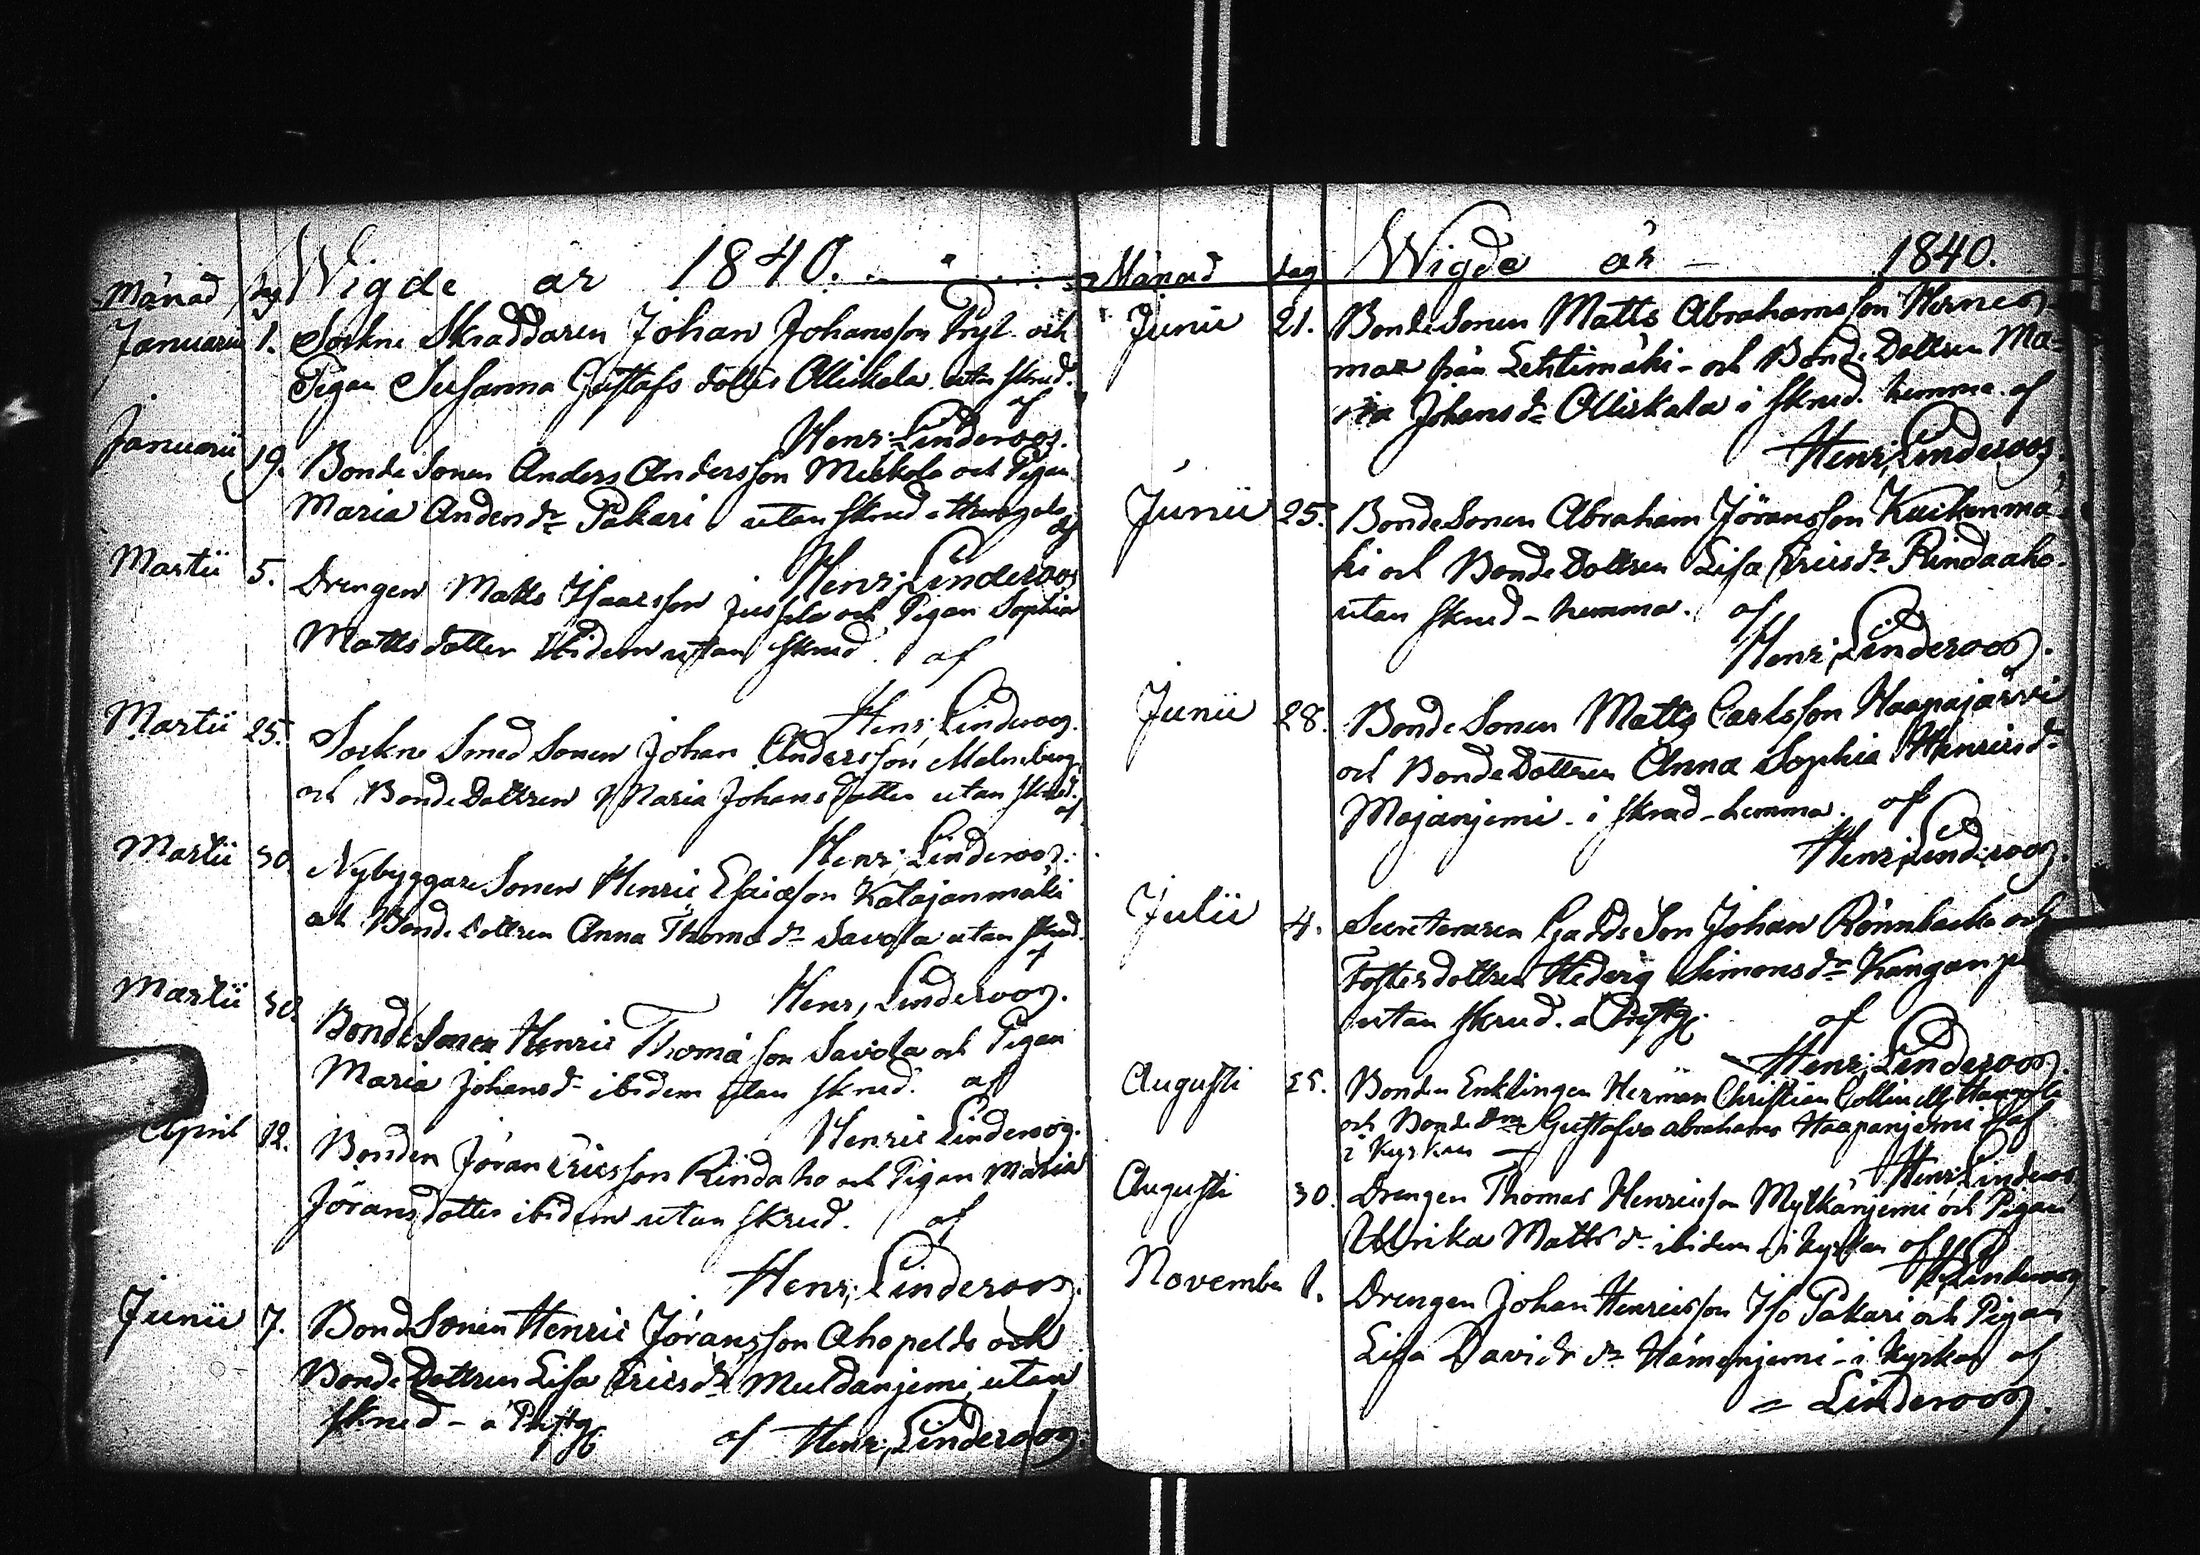 Månad dag Wigde år 1840.
Januarii 1. Sockne Skraddaren Johan Johansson Pryl och
Pigan Susanna Gustafs dotter Alliskala utan skrud.
af
Henr: Linderoos.
Januarii 19. Bonde Sonen Anders Andersson Miskola och Pigan
Maria Anders dr Pakari utan skrud
af
Henr: Linderoos
Martii 5. Drengen Matts Isaacsson Jussila och Pigan Sophia
Matts dotter Ibidem utan skrud. af
Henr: Linderoos.
Martii 25. Sockne Smed Sonen Johan Andersson Malmberg
och Bonde Dottren Maria Johans dotter utan skrud.
af
Henr: Linderoos.
Martii 30. Nybyggare Sonen Henric Esaiasson Katajanmäki
och Bonde Dottren Anna Thoma dr Savola utan skrud.
af
Henr: Linderoos.
Martii 30. Bonde Sonen Henric Thomasson Savola och Pigan
Maria Johans dr ibidem utan skrud. af
Henric Linderoos.
April 12. Bonden Jöran Ericsson Rindaho och Pigan Maria
Jörans dotter ibidem utan skrud. af
Henr: Linderoos.
Junii 7. Bond Sonen Henric Jöransson Ahopelds och
Bonde Dottren Lisa Erics dr Muldanjemi utan
skrud - a Prestg.
af Henr: Linderoos.
Månad dag Wigde år - 1840.
Junii 21. Bonde Sonen Matts Abrahamsson Hernes-
maa från Lehtimäki - och Bonde Dottren Ma-
ria Johans dr Alliskala i skrud. hemma. af
Henr: Linderoos.
Junii 25. Bonde Sonen Abraham Jöransson Kuckonmä-
ki och Bonde Dottren Lisa Erics dr Rindaaho.
utan skrud - hemma. af
Henr: Linderoos.
Junii 28. Bonde Sonen Matts Carlsson Haapajärvi
och Bonde Dottren Anna Sophia Henrics dr
Majanjemi - i skrud - hemma. af
Henr: Linderoos.
Julii 4. Secreteraren Gadds Son Johan Rönnbacka och
Fosterdottren Hedvig Simons dr Kangan
utan skrud. a Prestg.
af
Henr: Linderoos.
Augusti 25. Bonden Enklingen Herman Christian Collin
och Bonde Gustafva Abrahams Haapanjemi af
i Kyrkan
Henr: Linderoos
Augusti 30. Drengen Thomas Henricsson Mylkänjemi och Pigan
Ulrika Matts dr ibidem - i kyrkan af
H. Linderoos
November 1. Drengen Johan Henricsson Iso Pakari och Pigan
Lisa Davids dr Hämenjemi - i Kyrkan af
Linderoos.